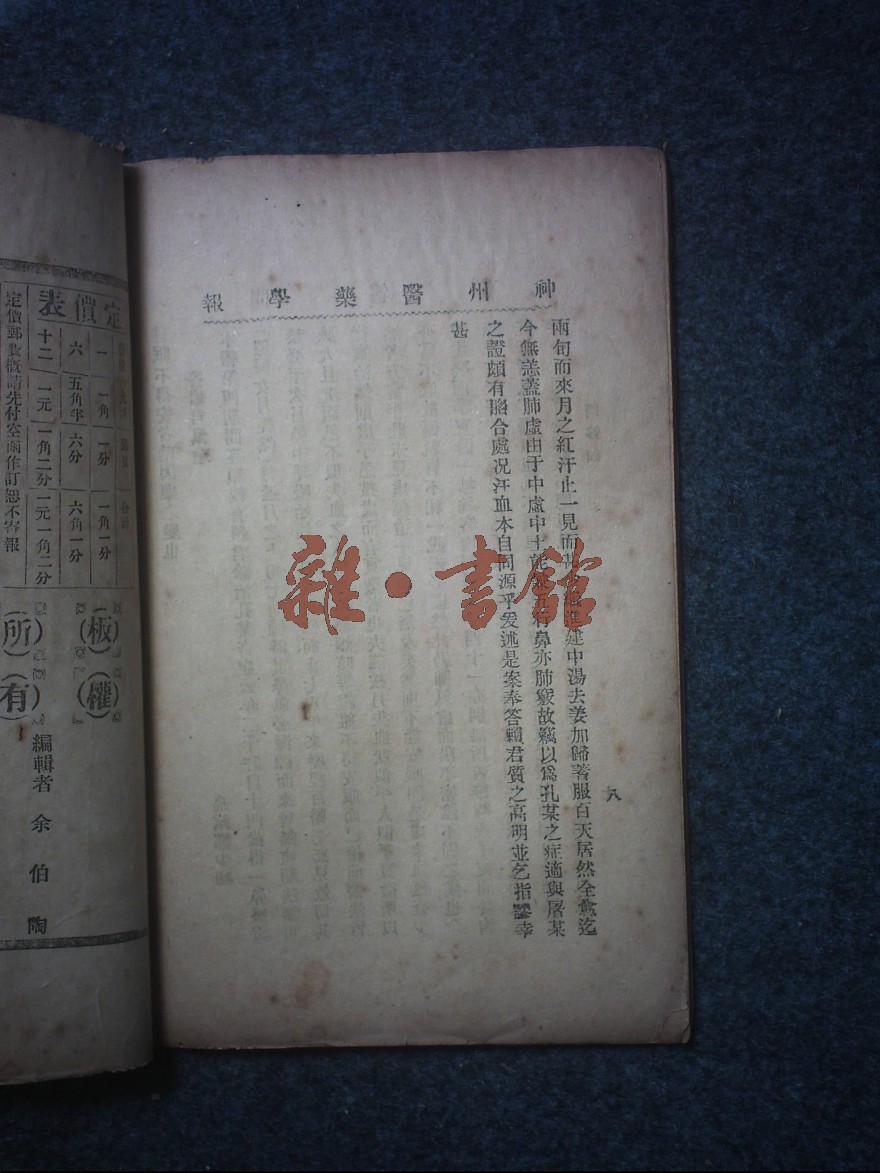 神州醫藥學報
兩旬而來月之紅汗止一見而建中湯去姜加歸蓍服百天居然全愈迄
今無恙蓋肺虛由于中虛中土能五行鼻亦肺竅故竊以爲孔某之症適與屠某
之證頗有脗合處况汗血本自同源乎爰述是案奉答賴君質之高明並乞指謬幸
甚
八
雜·書館
定價表
一 一角 一分 一角一分
六 五角半 六分 六角一分
十二 一元 一角二分 一元一角二分
定價郵費概請先付空函作訂恕不寄報
(板)(權)
(所)(有)
編輯者 余伯陶